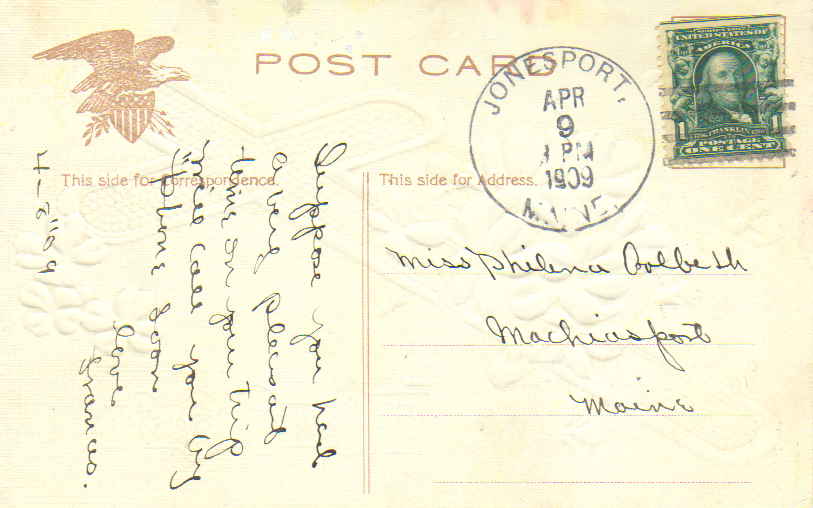 POST CARD
JONESPORT,
APR
9
1 PM
1909
MAINE.
UNITED STATES OF
AMERICA
1
FRANKLIN
POSTAGE
ONE CENT
This side for Correspondence.
This side for Address.
Suppose you had
a very pleasant
time on your trip
will call you by
"phone soon
love
Frances.
4-8"09
Miss Philena Colbeth
Machiasport
Maine